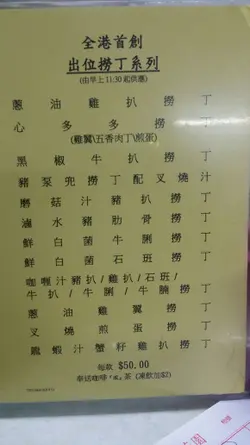 全港首創
出位撈丁系列
(由早上11:30起供應)
蔥油雞扒撈丁
心多多撈丁
(雞翼\五香肉丁\煎蛋)
黑椒牛扒撈丁
豬扒兜撈丁配叉燒汁
蘑菇汁豬扒撈丁
滷水豬肋骨撈丁
鮮白菌牛脷撈丁
鮮白菌石班撈丁
咖喱汁豬扒/雞扒/石班/
牛扒/牛脷/牛腩撈丁
蔥油雞翼撈丁
叉燒煎蛋撈丁
龍蝦汁蟹籽雞扒撈丁
每款 $50.00
奉送咖啡 "或" 茶 (凍飲加$2)